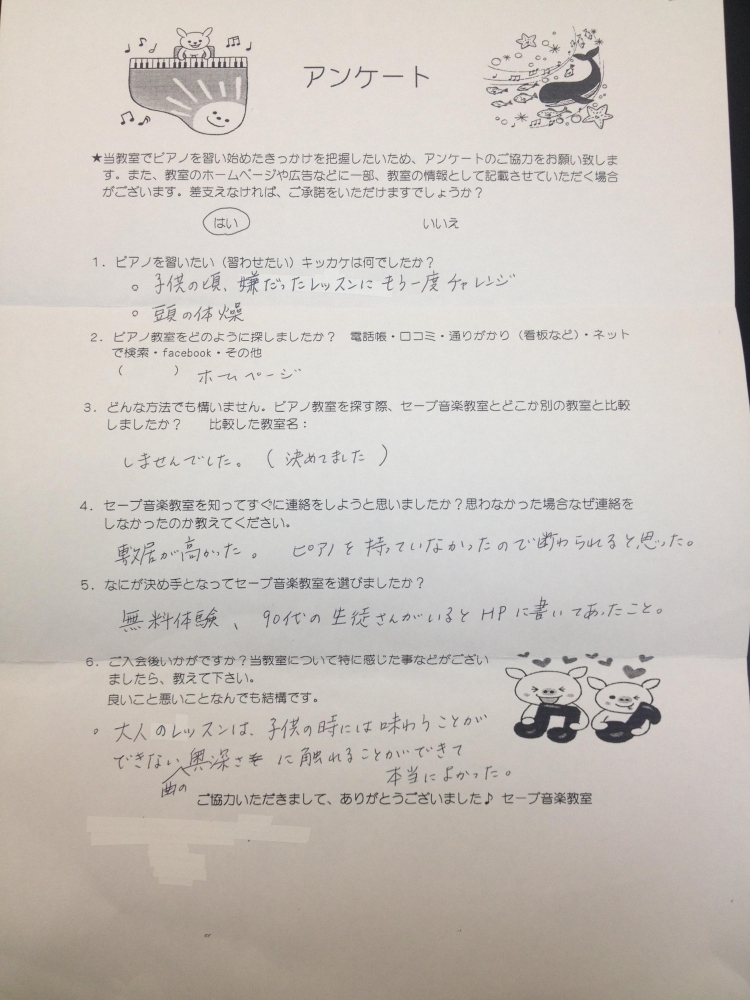 アンケート
★当教室でピアノを習い始めたきっかけを把握したいため、アンケートのご協力をお願い致しま
す。また、教室のホームページや広告などに一部、教室の情報として記載させていただく場合
がございます。差支えなければ、ご承諾をいただけますでしょうか？
はい いいえ
1．ピアノを習いたい（習わせたい）キッカケは何でしたか？
○ 子供の頃、嫌だったレッスンに もう一度チャレンジ
○ 頭の体燥
2．ピアノ教室をどのように探しましたか？ 電話帳・口コミ・通りがかり（看板など）・ネット
で検索・facebook・その他
（ ） ホームページ
3．どんな方法でも構いません。ピアノ教室を探す際、セーブ音楽教室とどこか別の教室と比較
しましたか？ 比較した教室名：
しませんでした。（決めてました）
4．セーブ音楽教室を知ってすぐに連絡をしようと思いましたか？思わなかった場合なぜ連絡を
しなかったのか教えてください。
敷居が高かった。 ピアノを持っていなかったので断わられると思った。
5．なにが決め手となってセーブ音楽教室を選びましたか？
無料体験、90代の生徒さんがいるとHPに書いてあったこと。
6．ご入会後いかがですか？当教室について特に感じた事などがござい
ましたら、教えて下さい。
良いこと悪いことなんでも結構です。
○ 大人のレッスンは、子供の時には味わうことが
できない曲の奥深さに触れることができて
本当によかった。
ご協力いただきまして、ありがとうございました♪ セーブ音楽教室